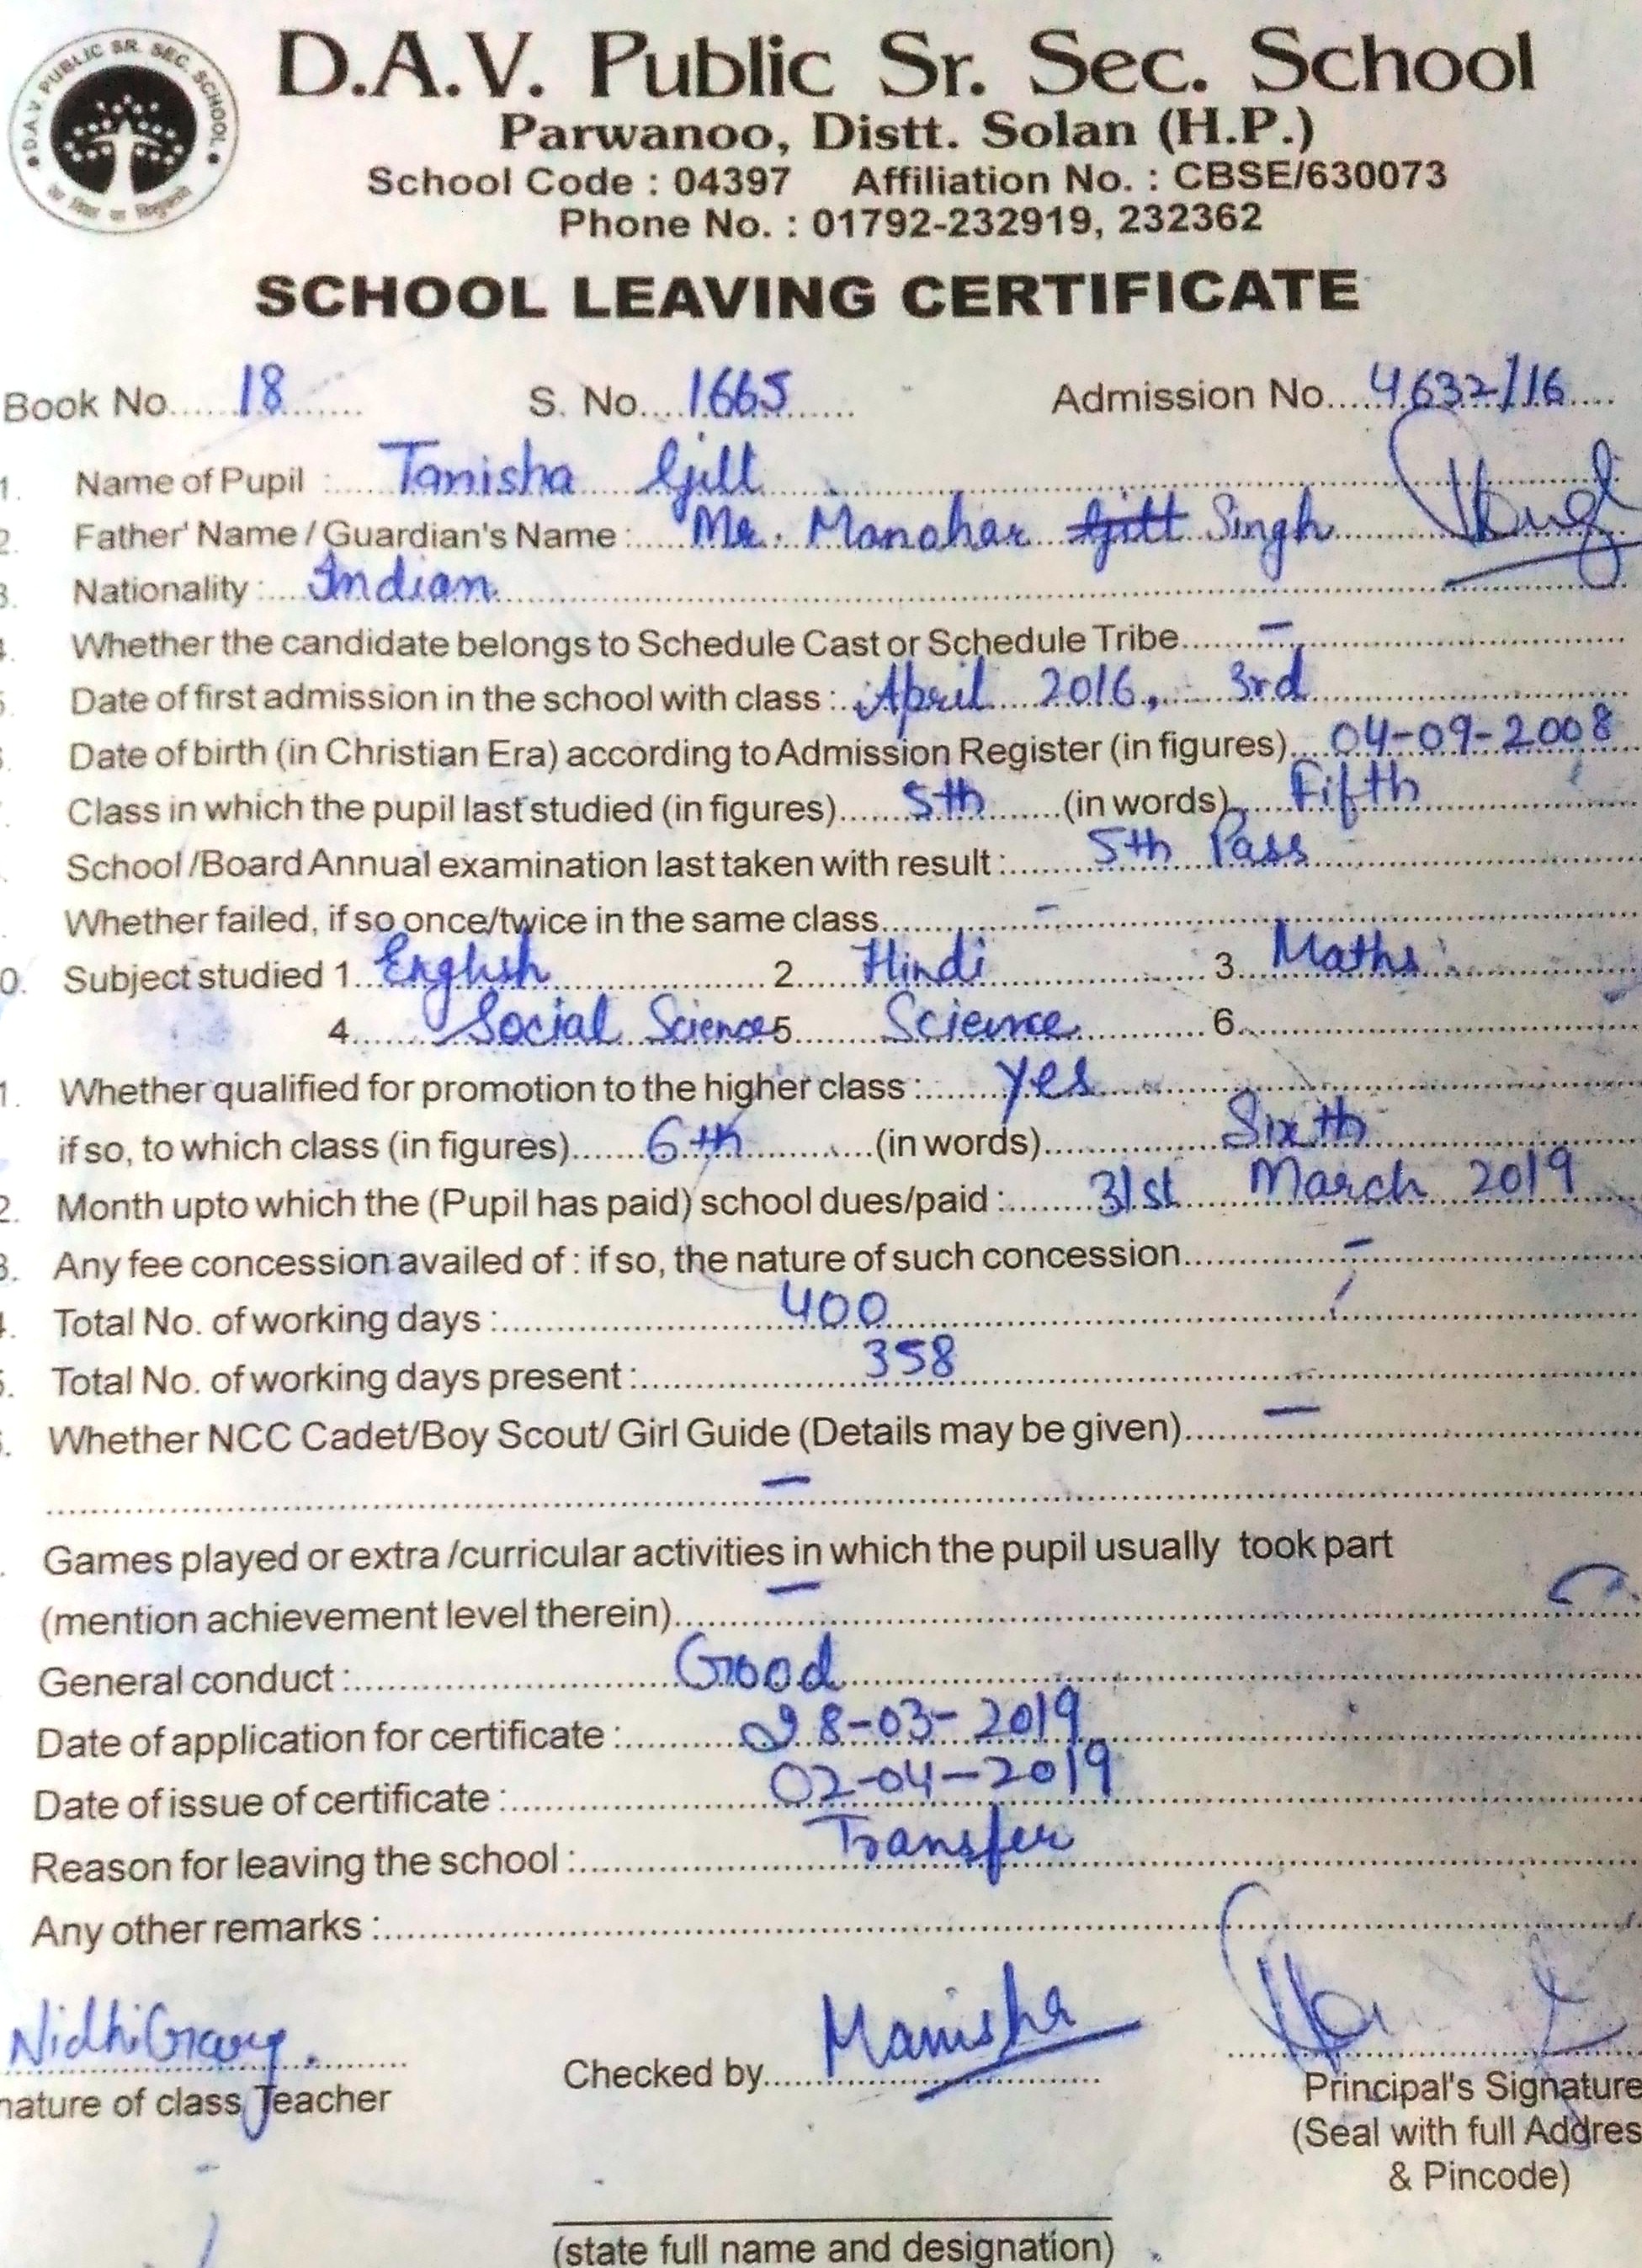 D.A.V. PUBLIC SR. SEC. SCHOOL
D.A.V. Public Sr. Sec. School
Parwanoo, Distt. Solan (H.P.)
School Code : 04397 Affiliation No. : CBSE/630073
Phone No. : 01792-232919, 232362
SCHOOL LEAVING CERTIFICATE
Book No. 18 S. No. 1665 Admission No. 4632/16
1. Name of Pupil : Tanisha Gill
2. Father' Name / Guardian's Name : Mr. Manohar Gill Singh
3. Nationality : Indian
4. Whether the candidate belongs to Schedule Cast or Schedule Tribe –
5. Date of first admission in the school with class : April 2016, 3rd
Date of birth (in Christian Era) according to Admission Register (in figures) 04-09-2008
Class in which the pupil last studied (in figures) 5th (in words) Fifth
School /Board Annual examination last taken with result : 5th Pass
Whether failed, if so once/twice in the same class –
0. Subject studied 1. English 2. Hindi 3. Maths
4. Social Science 5. Science 6.
1. Whether qualified for promotion to the higher class : yes
if so, to which class (in figures) 6th (in words) Sixth
2. Month upto which the (Pupil has paid) school dues/paid : 31st March 2019
3. Any fee concession availed of : if so, the nature of such concession –
4. Total No. of working days : 400
5. Total No. of working days present : 358
Whether NCC Cadet/Boy Scout/ Girl Guide (Details may be given) –
–
Games played or extra /curricular activities in which the pupil usually took part
(mention achievement level therein) –
General conduct : Good
Date of application for certificate : 28-03-2019
Date of issue of certificate : 02-04-2019
Reason for leaving the school : Transfer
Any other remarks :
Nidhi Garg. Checked by Manisha
nature of class Teacher Principal's Signature
(Seal with full Addres
& Pincode)
(state full name and designation)